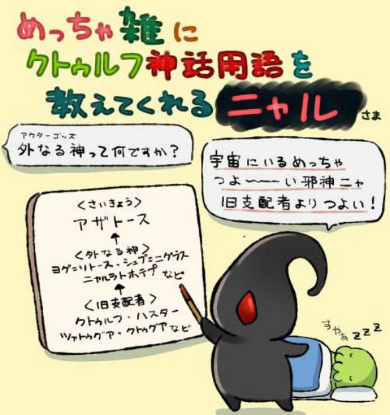 めっちゃ雑に
クトゥルフ神話用語を
教えてくれるニャル さま
アウターゴッズ
外なる神って何ですか?
宇宙にいるめっちゃ
つよ〜〜〜い邪神ニャ
旧支配者よりつよい!
<さいきょう>
アザトース
↑
<外なる神>
ヨグ=ソトース・シュブ=ニグラス
ニャルラトホテプ など
↑
<旧支配者>
クトゥルフ・ハスター
ツァトゥグア・クトゥグア など
すやぁ zzz